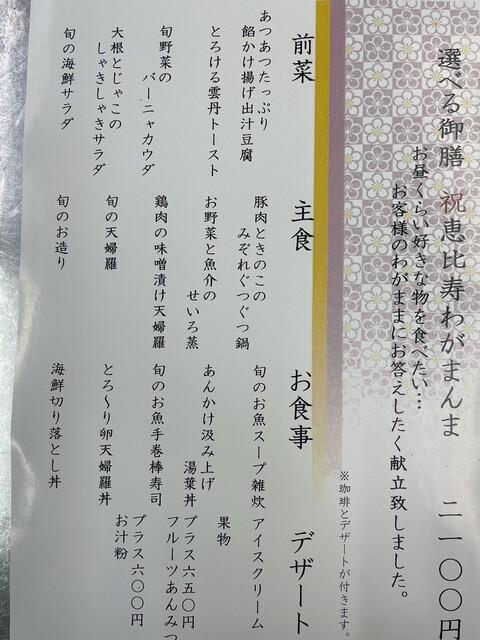 選べる御膳 祝恵比寿わがまんま 二一〇〇円
お昼くらい好きな物を食べたい…
お客様のわがままにお答えしたく献立致しました。
※珈琲とデザートが付きます。
前菜
あつあつたっぷり
餡かけ揚げ出汁豆腐
とろける雲丹トースト
旬野菜の
バーニャカウダ
大根とじゃこの
しゃきしゃきサラダ
旬の海鮮サラダ
主食
豚肉ときのこの
みぞれぐつぐつ鍋
お野菜と魚介の
せいろ蒸
鶏肉の味噌漬け天婦羅
旬の天婦羅
旬のお造り
お食事
旬のお魚スープ雑炊
あんかけ汲み上げ
湯葉丼
旬のお魚手巻棒寿司
とろ～り卵天婦羅丼
海鮮切り落とし丼
デザート
アイスクリーム
果物
プラス六五〇円
フルーツあんみつ
プラス六〇〇円
お汁粉